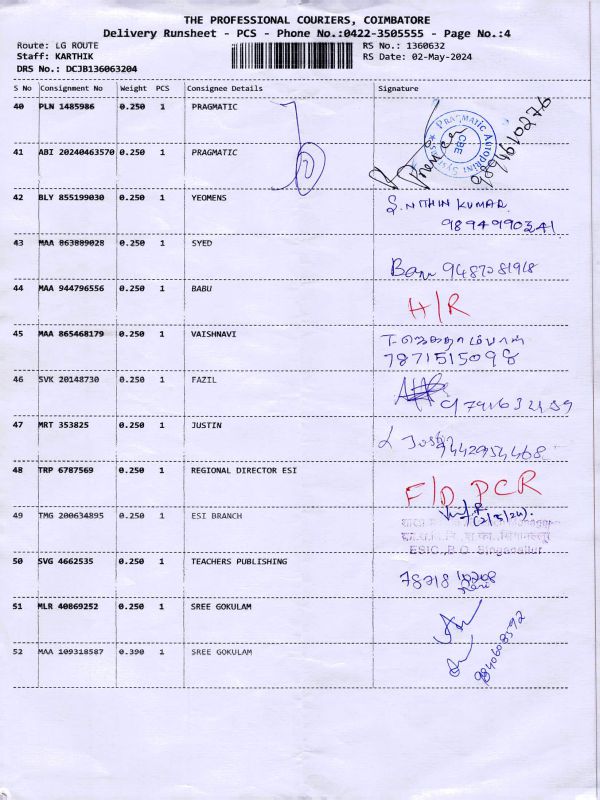 THE PROFESSIONAL COURIERS, COIMBATORE
Delivery Runsheet - PCS - Phone No.:0422-3505555 - Page No.:4
Route: LG ROUTE RS No.: 1360632
Staff: KARTHIK RS Date: 02-May-2024
DRS No.: DCJB136063204
S No Consignment No Weight PCS Consignee Details Signature
40 PLN 1485986 0.250 1 PRAGMATIC
9894610276
41 ABI 20240463570 0.250 1 PRAGMATIC
42 BLY 855199030 0.250 1 YEOMENS S. NITHIN KUMAR
9894990341
43 MAA 863889028 0.250 1 SYED
9487081918
44 MAA 944796556 0.250 1 BABU H/R
45 MAA 865468179 0.250 1 VAISHNAVI
7871515098
46 SVK 20148730 0.250 1 FAZIL
47 MRT 353825 0.250 1 JUSTIN
9442954468
48 TRP 6787569 0.250 1 REGIONAL DIRECTOR ESI F/D PCR
49 TMG 200634895 0.250 1 ESI BRANCH (2/5/24).
ESIC, B.O. Singanallur
50 SVG 4662535 0.250 1 TEACHERS PUBLISHING
51 MLR 40869252 0.250 1 SREE GOKULAM
52 MAA 109318587 0.390 1 SREE GOKULAM 9840608592